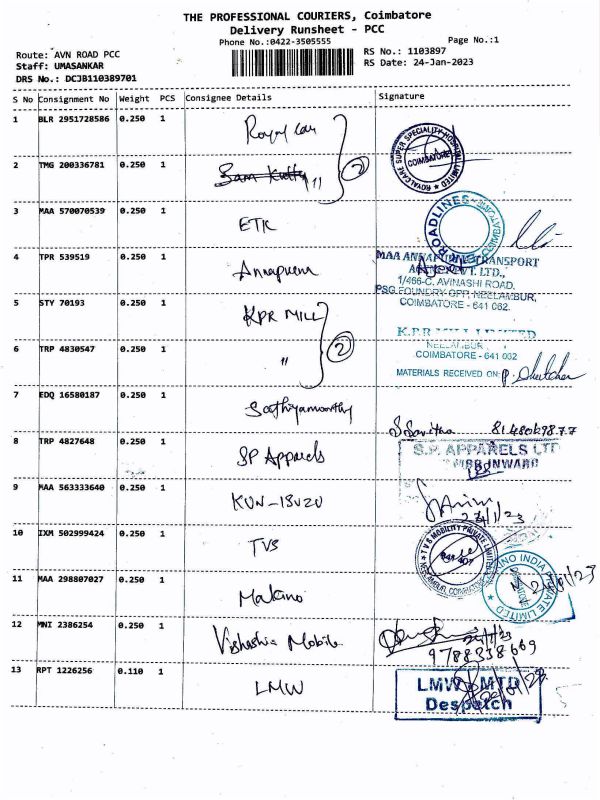 THE PROFESSIONAL COURIERS, Coimbatore
Delivery Runsheet - PCC
Phone No.:0422-3505555
Page No.:1
Route: AVN ROAD PCC
RS No.: 1103897
Staff: UMASANKAR
RS Date: 24-Jan-2023
DRS No.: DCJB110389701
S No Consignment No Weight PCS Consignee Details Signature
1 BLR 2951728586 0.250 1 Royal Car
ROYALCARE SUPER SPECIALITY HOSPITAL LIMITED
COIMBATORE
2 TMG 200336781 0.250 1 " 2
3 MAA 570070539 0.250 1 ETK
ROADLINES
COIMBATORE
4 TPR 539519 0.250 1 Annapurna
MAA ANNAPURNA TRANSPORT
AGENCY PVT. LTD.,
1/466-C, AVINASHI ROAD,
PSG FOUNDRY OPP, NEELAMBUR,
COIMBATORE - 641 062.
5 STY 70193 0.250 1 KPR MILL
K.P.R MILL LIMITED
6 TRP 4830547 0.250 1 " 2
NEELAMBUR
COIMBATORE - 641 062
MATERIALS RECEIVED ON:
7 EDQ 16580187 0.250 1 Sathiyamoorthy
S Savitha
8 TRP 4827648 0.250 1 SP Apparels
S.P. APPARELS LTD
INWARD
9 MAA 563333640 0.250 1 KUN-ISUZU
24/1/23
10 IXM 502999424 0.250 1 TVS
TVS MOBILITY PRIVATE LIMITED
NEELAMBUR, COIMBATORE
11 MAA 298807027 0.250 1 Makino
MAKINO INDIA PRIVATE LIMITED
COIMBATORE
24/01/23
12 MNI 2386254 0.250 1 Mobile
9788338669
13 RPT 1226256 0.110 1 LMW
LMW MTD
Despatch